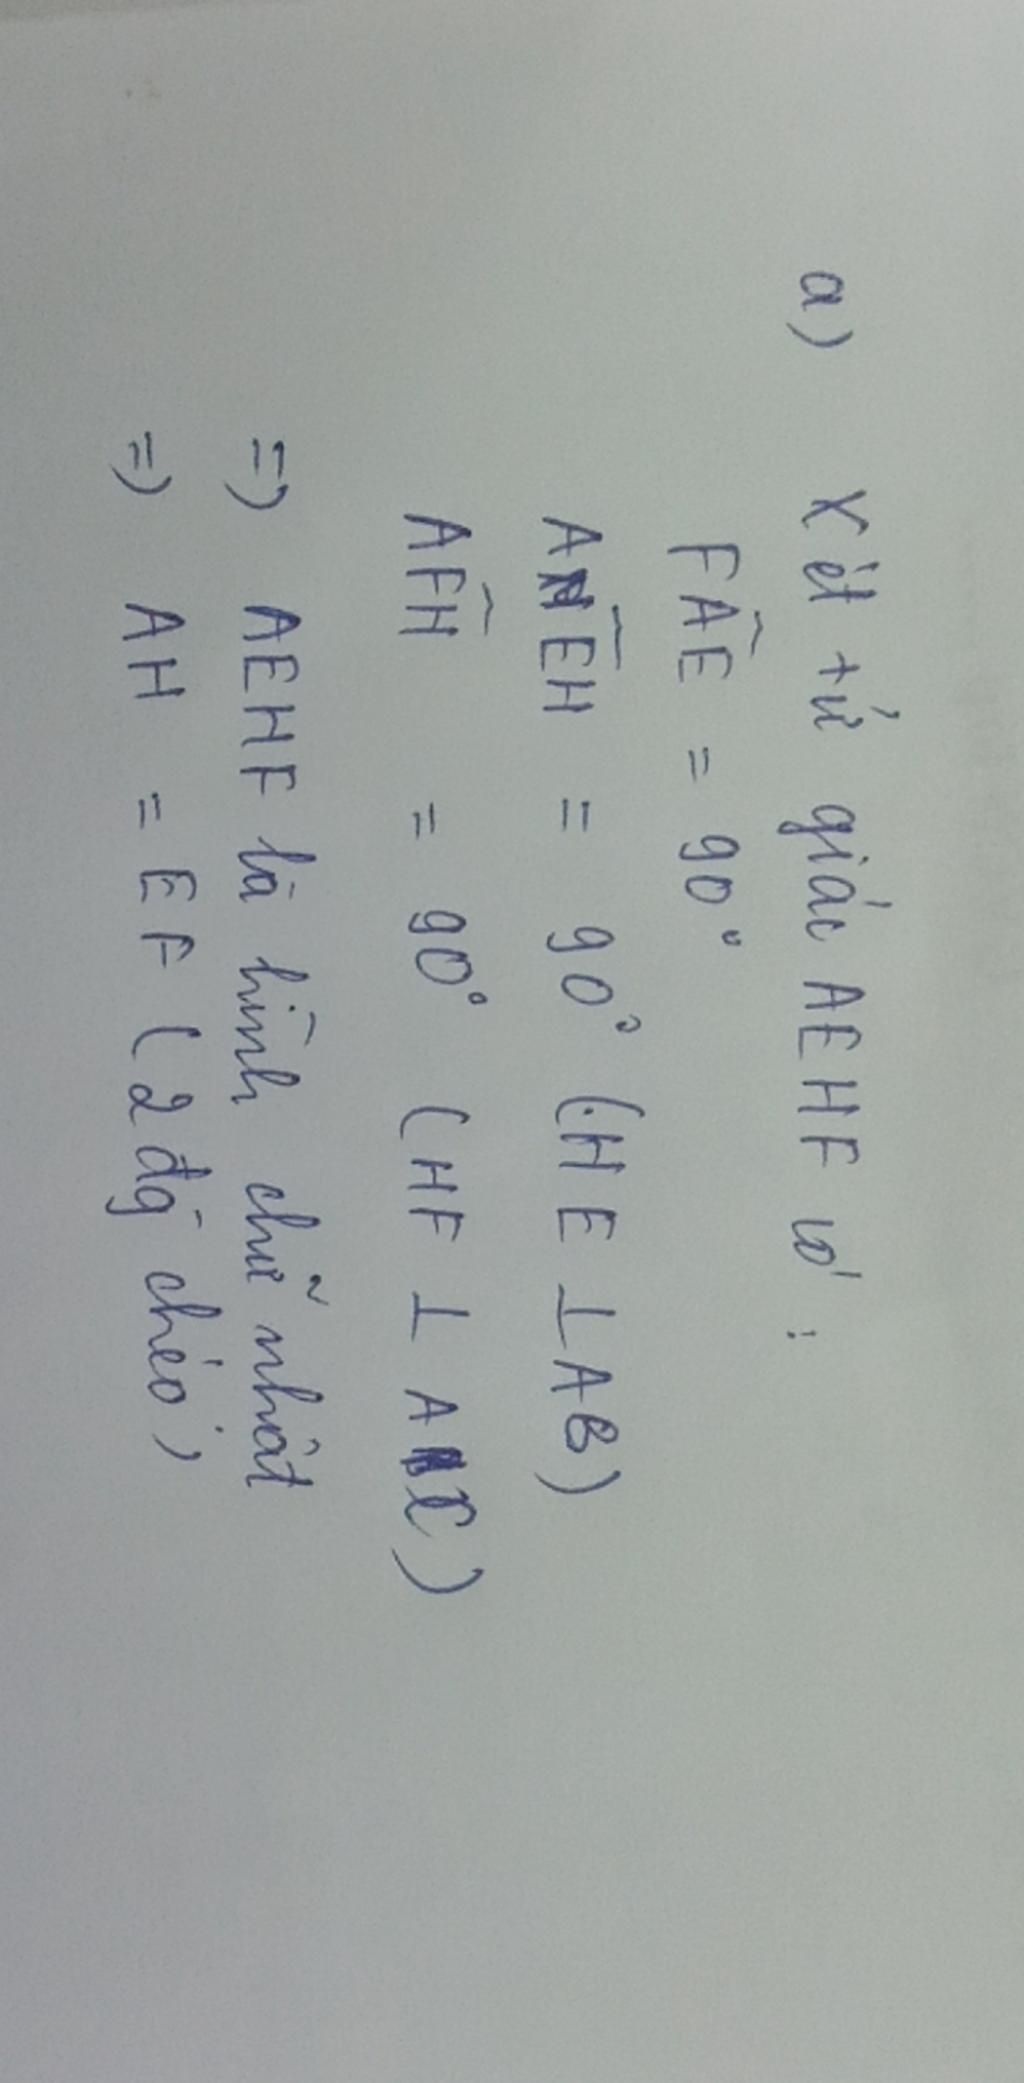 a) Xét tứ giác AEHF có:
FÂE = 90°
AÊH = 90° (HE ⊥ AB)
AF̂H = 90° (HF ⊥ AC)
=> AEHF là hình chữ nhật
=> AH = EF (2 đg chéo)